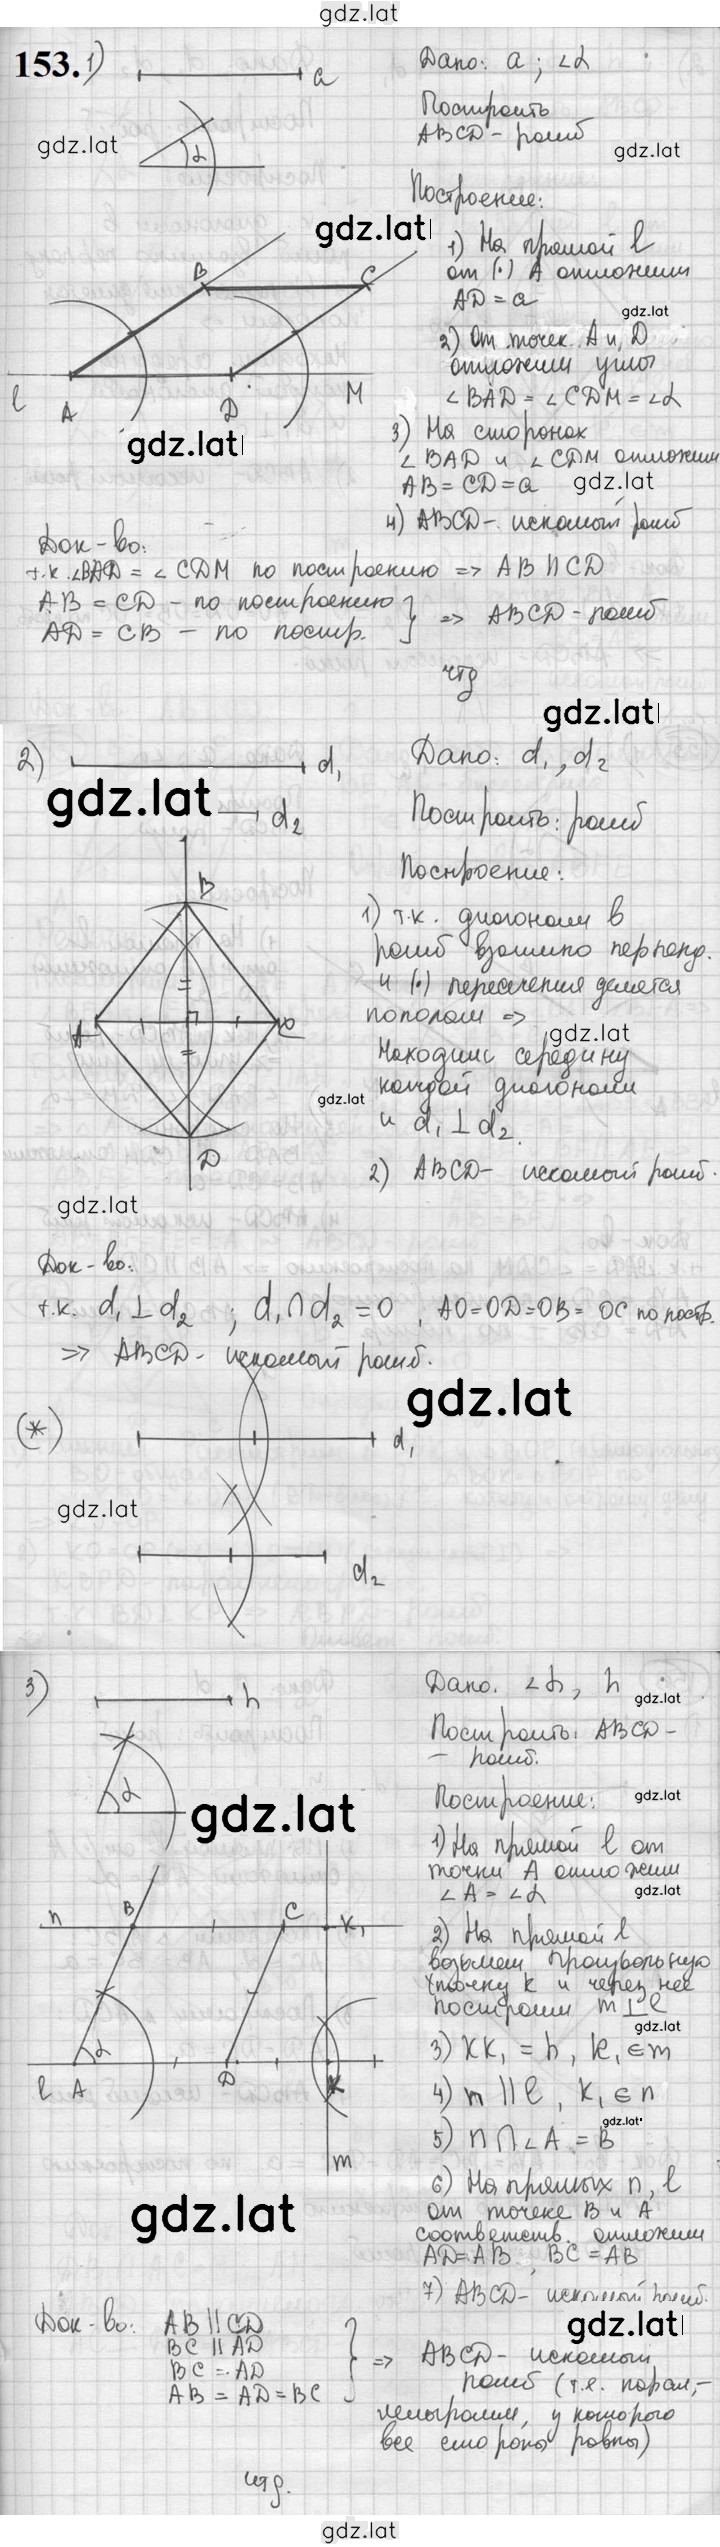 gdz.lat
153. 1)
a
Дано: a ; ∠α
gdz.lat
α
Построить
ABCD - ромб
gdz.lat
Построение:
gdz.lat
1) На прямой l
от (·) A отложим
AD = a
gdz.lat
B
C
l
A
D
M
2) От точек A и D
отложим углы
∠BAD = ∠CDM = ∠α
gdz.lat
3) На сторонах
∠BAD и ∠CDM отложим
AB = CD = a
gdz.lat
4) ABCD - искомый ромб
Док-во:
т.к. ∠BAD = ∠CDM по построению => AB || CD
AB = CD - по построению
AD = CB - по постр.
} => ABCD - ромб
чтд
gdz.lat
2)
d₁
gdz.lat
d₂
Дано: d₁, d₂
Построить: ромб
Построение:
B
1) т.к. диагонали в
ромб взаимно перпенд.
и (·) пересечения делется
пополам =>
gdz.lat
A
C
Находим середину
каждой диагонали
и d₁ ⊥ d₂.
gdz.lat
D
2) ABCD - искомый ромб.
gdz.lat
Док-во:
т.к. d₁ ⊥ d₂ ; d₁ ∩ d₂ = O, AO=OD=OB= OC по постр.
=> ABCD - искомый ромб.
gdz.lat
(*)
d₁
gdz.lat
d₂
3)
h
Дано: ∠α, h
gdz.lat
Построить: ABCD -
- ромб.
α
gdz.lat
Построение:
gdz.lat
1) На прямой l от
точки A отложим
∠A = ∠α
gdz.lat
n
B
C
K₁
2) На прямой l
возьмем произвольную
точку K и через нее
построим m ⊥ l
gdz.lat
α
l
A
D
K
m
3) KK₁ = h, K₁ ∈ m
4) n || l, K₁ ∈ n
gdz.lat
5) n ∩ ∠A = B
6) На прямых n, l
от точеке B и A
соответств. отложим
AD=AB, BC = AB
gdz.lat
7) ABCD - искомый ромб.
Док-во: AB || CD
BC || AD
BC = AD
AB = AD = BC
gdz.lat
} => ABCD - искомый
ромб (т.е. парал,-
лелограмм, у которого
все стороны равны)
чтд.
gdz.lat